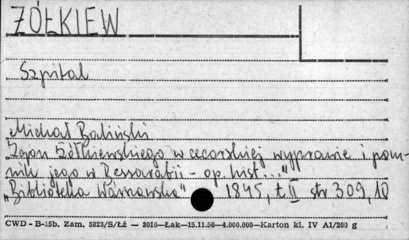 ŻÓŁKIEW
Szpital
Michał Baliński
"Zgon Żółkiewskiego w cecorskiej wyprawie i pom-
nik jego w Bessarabii - op. hist..."
"Biblioteka Warszawska" 1845, t. II str 309, 10
CWD - B-15b. Zam. 5823/S/Łż — 3016—Łak—15.11.56—4.000.000—Karton kl. IV A1/200 g